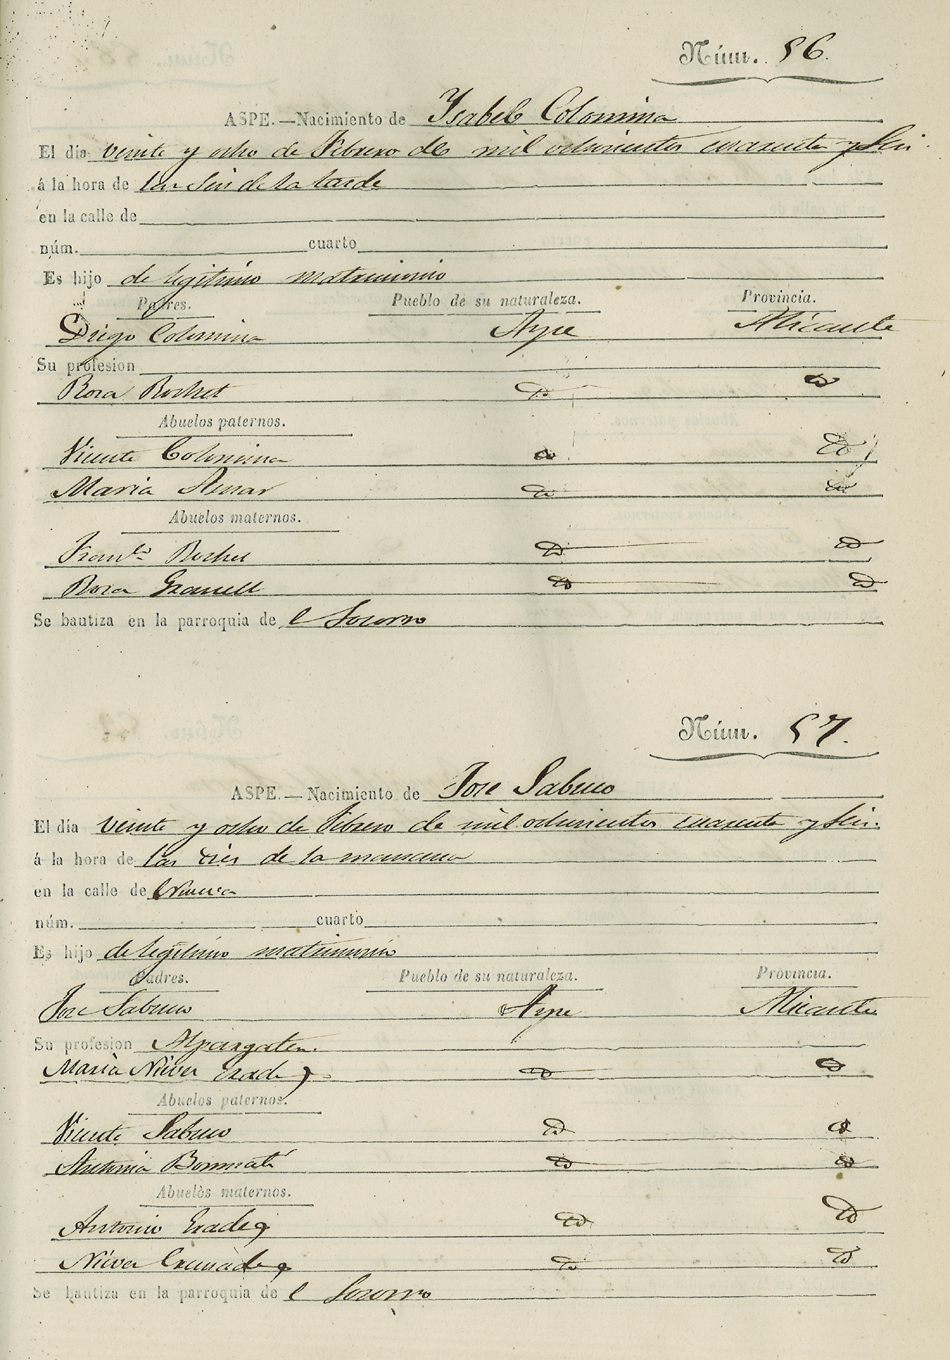 Núm. 56.
ASPE.—Nacimiento de Ysabel Colomina
El dia veinte y ocho de Febrero de mil ochocientos cuarenta y seis
á la hora de las seis de la tarde
en la calle de
núm. cuarto
Es hijo de legitimo matrimonio
Padres. Pueblo de su naturaleza. Provincia.
Diego Colomina Aspe Alicante
Su profesion
Rosa Bochet id id
Abuelos paternos.
Vicente Colomina id id
Maria id id
Abuelos maternos.
Franco id id
Rosa id id
Se bautiza en la parroquia de el Socorro
Núm. 57.
ASPE.—Nacimiento de Jose Sabuco
El día veinte y ocho de Febrero de mil ochocientos cuarenta y seis.
á la hora de las dies de la manana
en la calle de Nueva
núm. cuarto
Es hijo de legitimo matrimonio
Padres. Pueblo de su naturaleza. Provincia.
Jose Sabuco Aspe Alicante
Su profesion Alpargate.
Maria Nieves id id
Abuelos paternos.
Vicente Sabuco id id
Antonia Bonmatí id id
Abuelos maternos.
Antonio id id
Nieves id id
Se bautiza en la parroquia de el Socorro